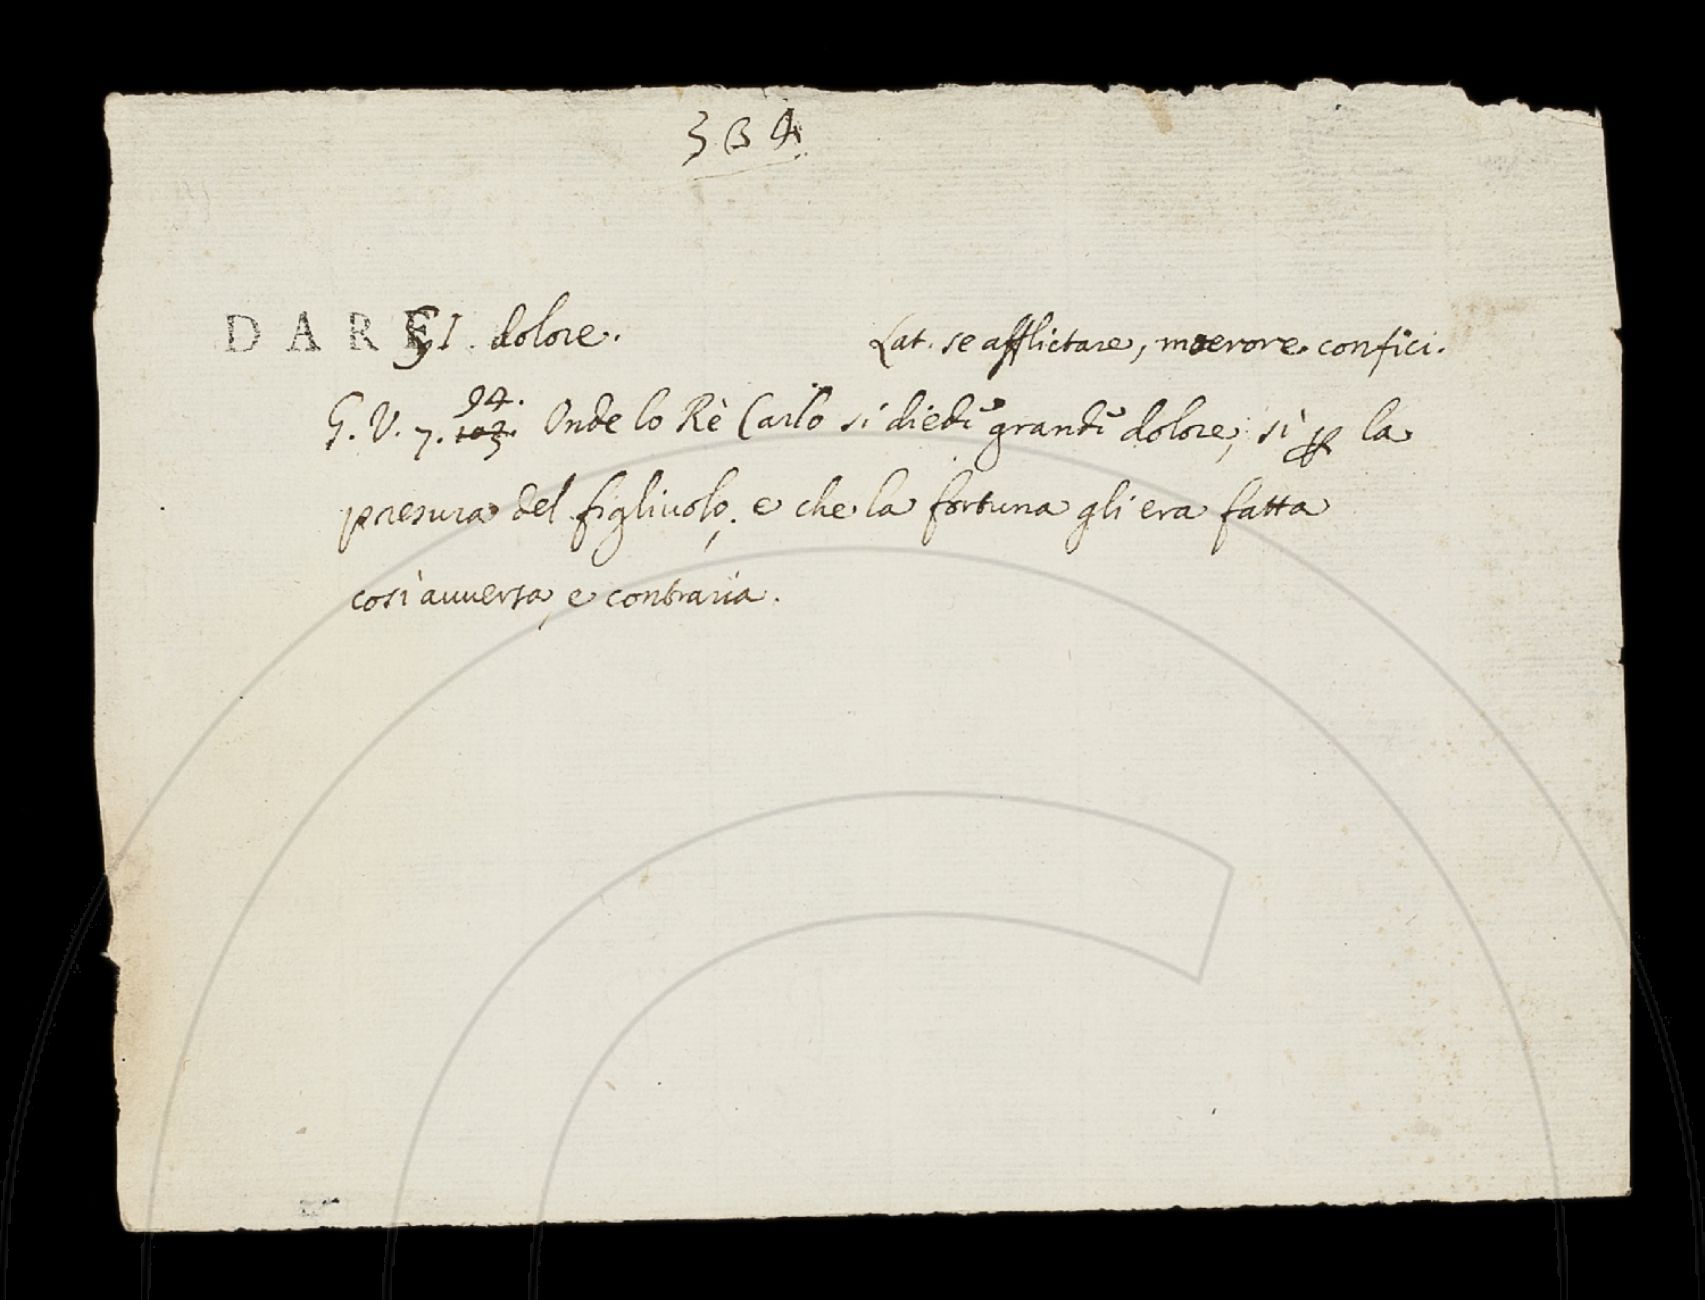 334.
DARSI dolore. Lat. se afflictare, moerore confici.
94.
G. V. 7. 103. Onde lo Rè Carlo si diede grande dolore, sì ꝑ la
presura del figliuolo, e che la fortuna gli era fatta
così avversa, e contraria.